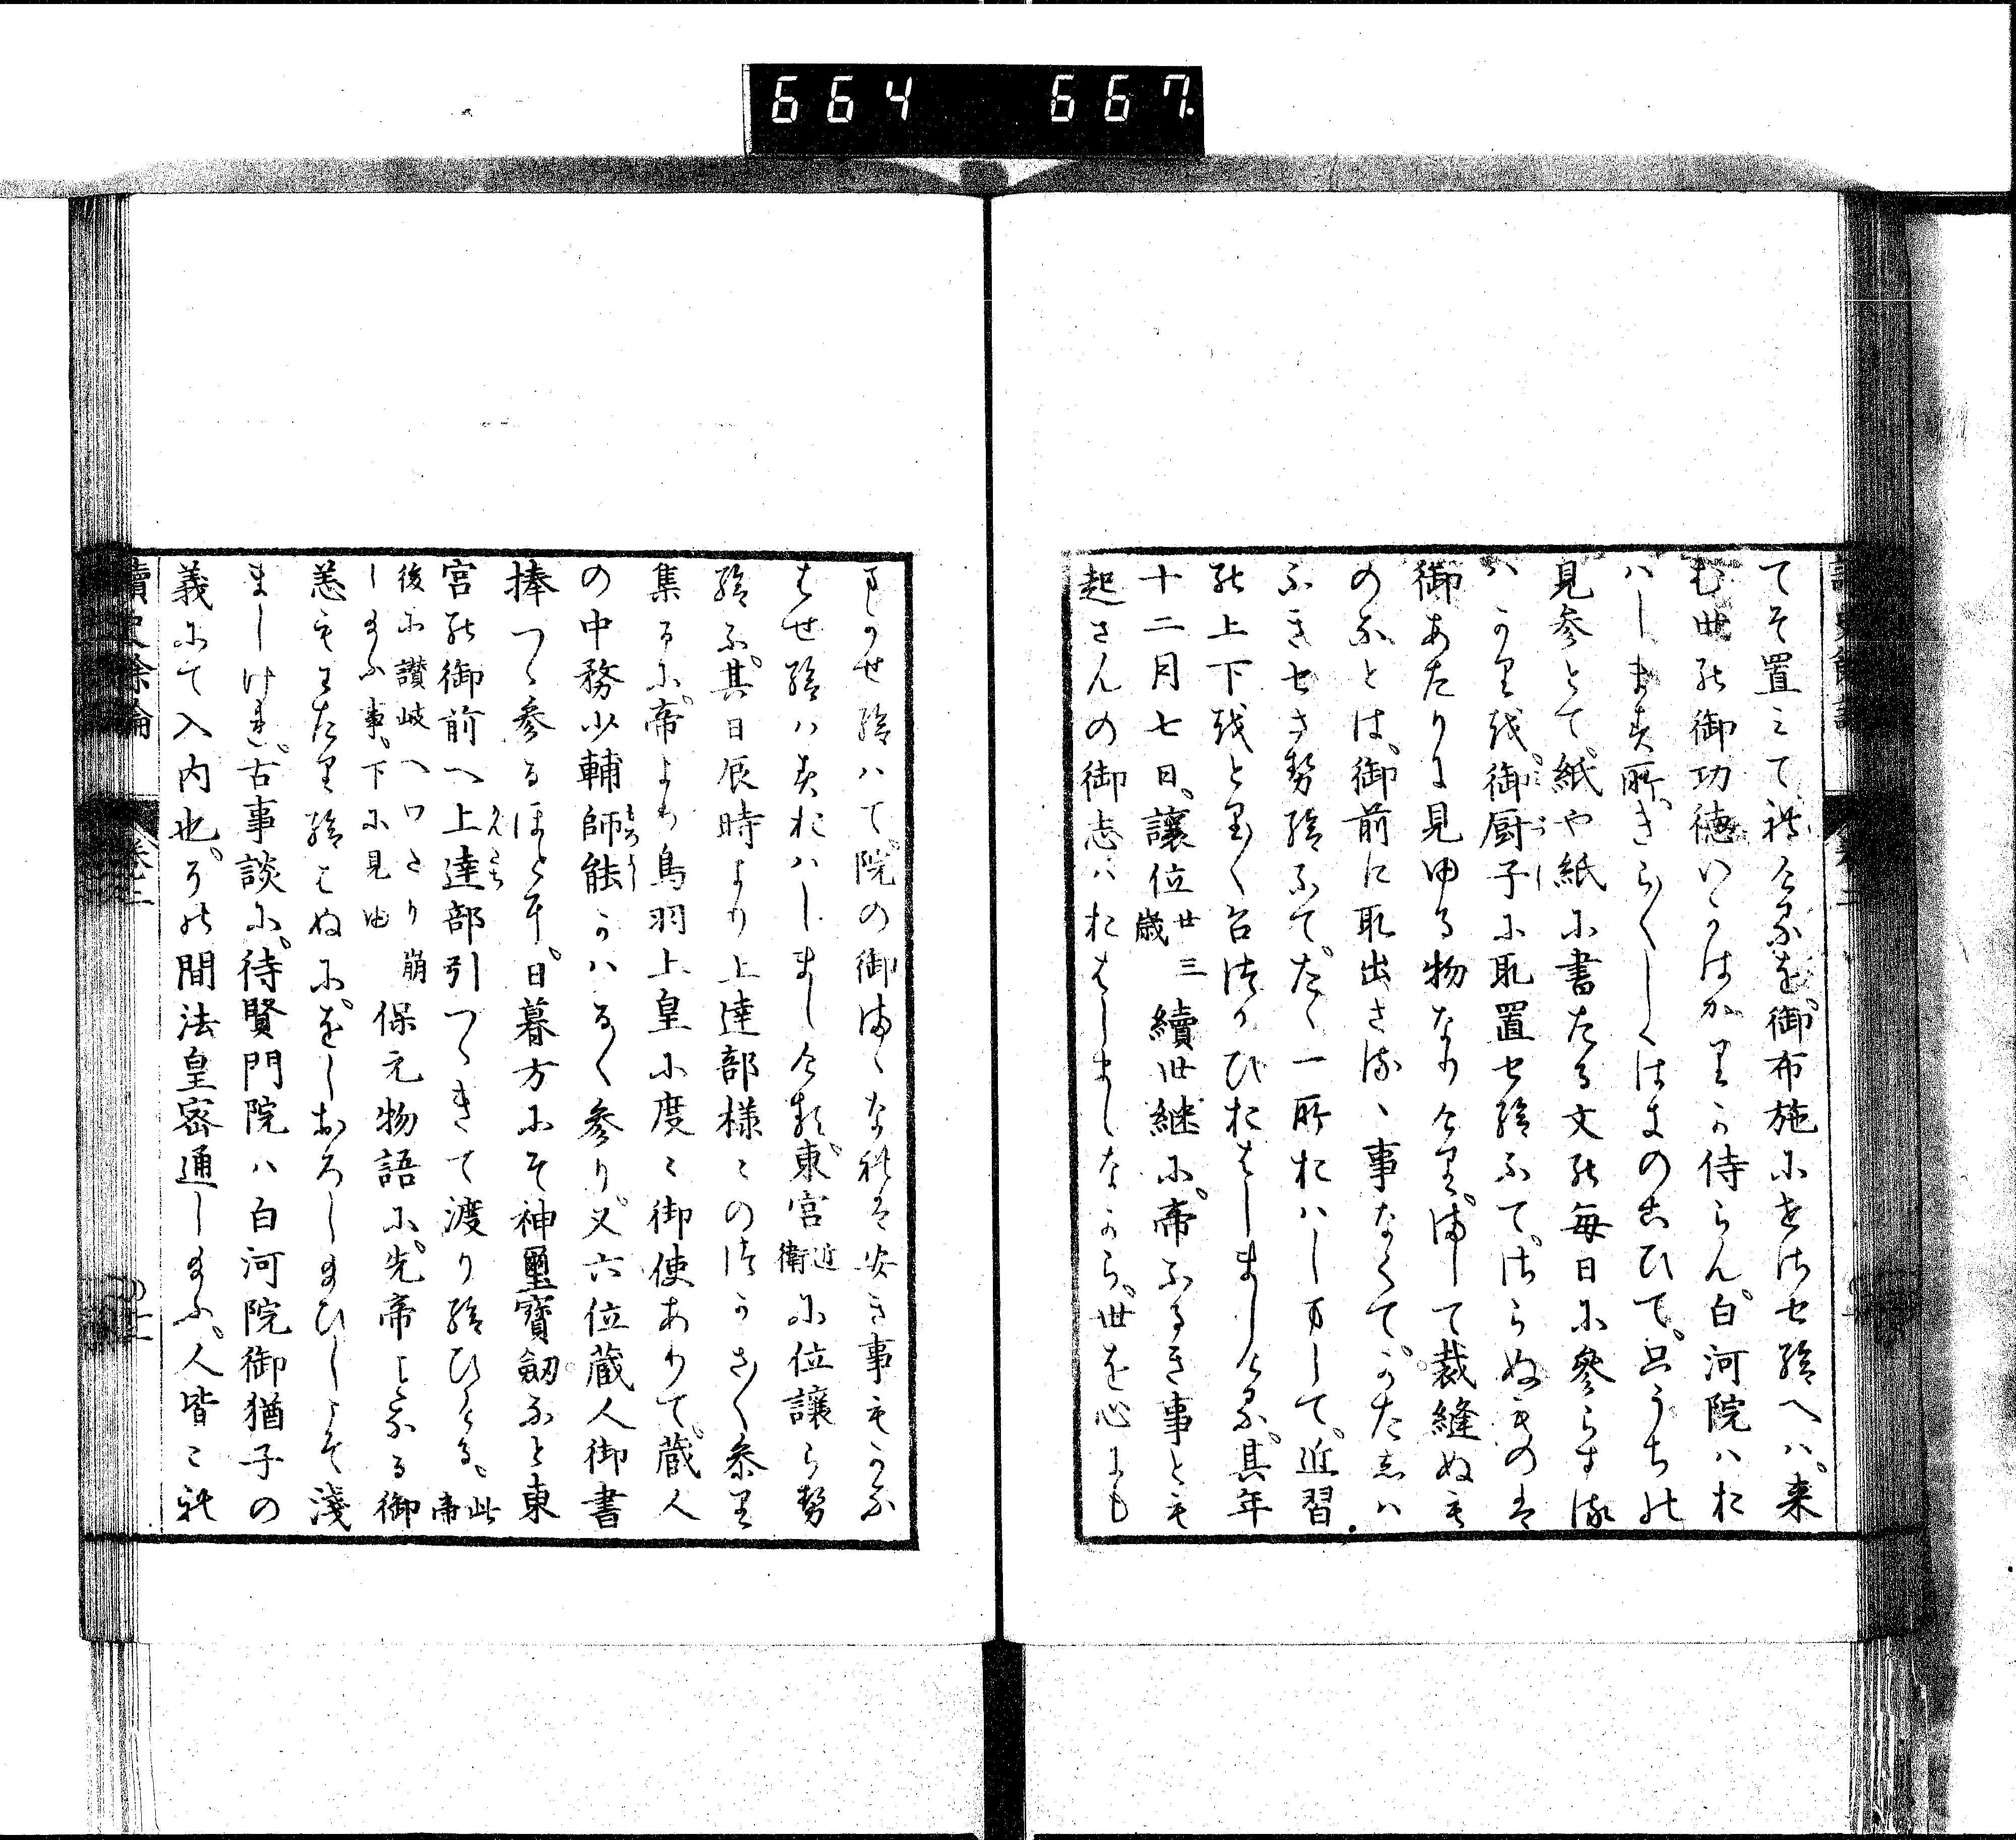 664 667
てそ置ミて禄けるを御布施にせさせ給へハ来
む世の御功徳いかはかりか侍らん白河院ハお
ハします所きらきらしくはきのこひて只うちの
見参とて紙や紙に書たる文の毎日に参らする
ハかりを御厨子に取置せ給ふてさらぬものは
御あたりに見ゆる物なかりけりまして裁縫ぬも
のなとは御前に取出さるゝ事なくてかたしハ
ふきせさせ給ふてたゝ一所おハしまして近習
の上下をとりく召つかひおはしましける其年
十二月七日讓位廿三歳續世継に帝ふるき事とも
起さんの御志ハおはしましなから世を心にも
まかせ給ハて院の御まゝなれは安き事もかな
はせ給ハすおハしましけり東宮近衛に位讓らせ
給ふ其日辰時より上達部様々のつかさく参り
集るに帝より鳥羽上皇に度々御使ありて蔵人
の中務少輔師能かハるく参り又六位蔵人御書
捧つゝ参るほとに日暮方にそ神璽寳劔なと東
宮の御前へ上達部引つゝきて渡り給ひける此帝
後に讃岐へワたり崩
しまふ事下に見ゆ
保元物語に先帝ことなる御
恙もわたり給はぬにをしおろしまひしこそ淺
ましけれ古事談に待賢門院ハ白河院御猶子の
義にて入内也その間法皇密通しまふ人皆これ
續史餘論
巻十二